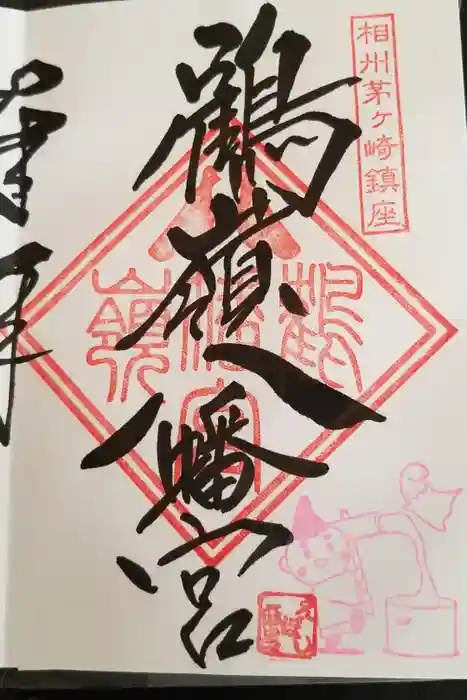 相州茅ヶ崎鎮座
鶴嶺八幡宮
奉拝